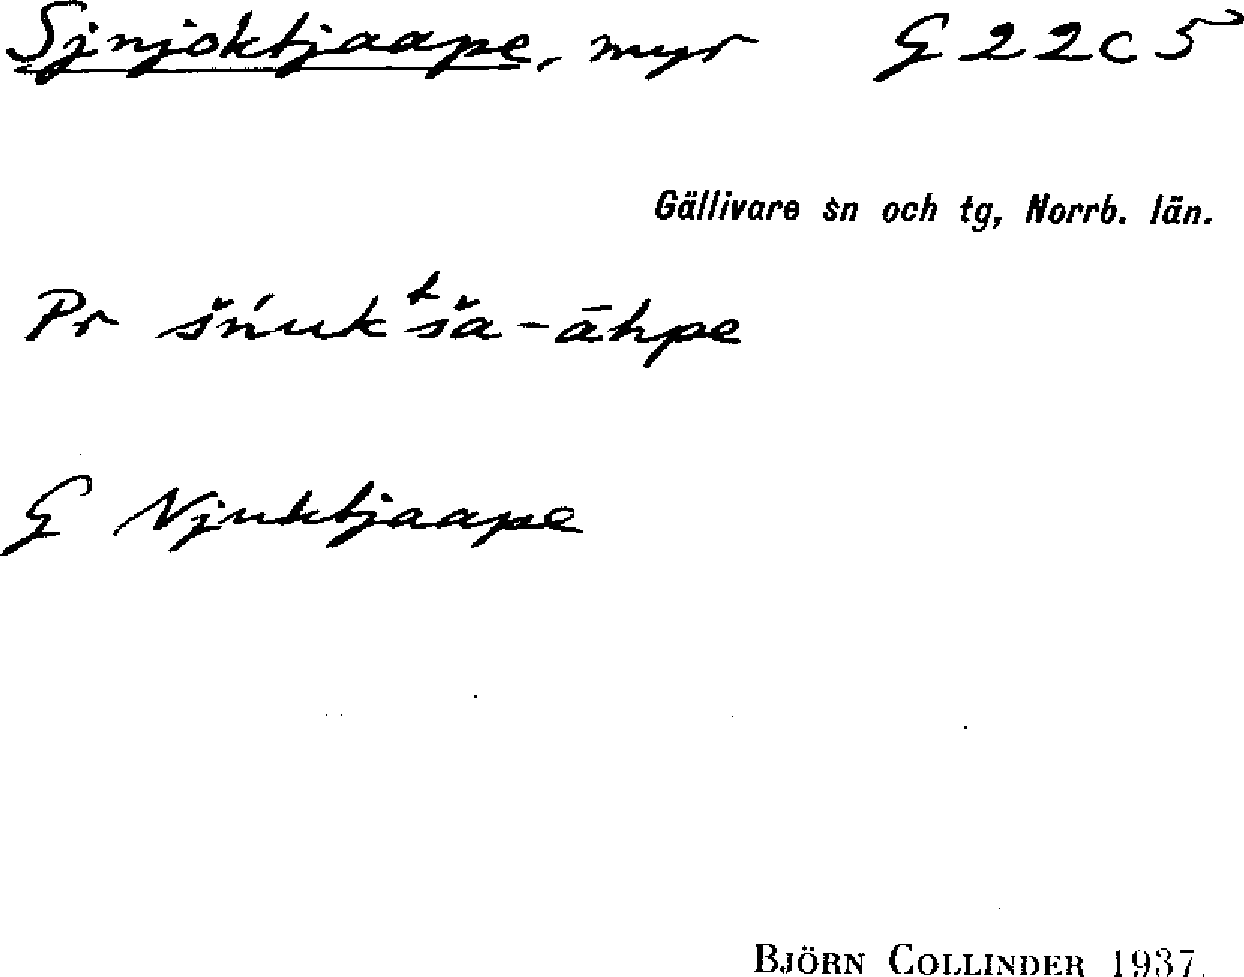 Sjnjoktjaape, myr G 22c5
Gällivare sn och tg, Norrb. län.
Pr šńukᵗša-āhpe
G Njuktjaape
BJÖRN COLLINDER 1937.